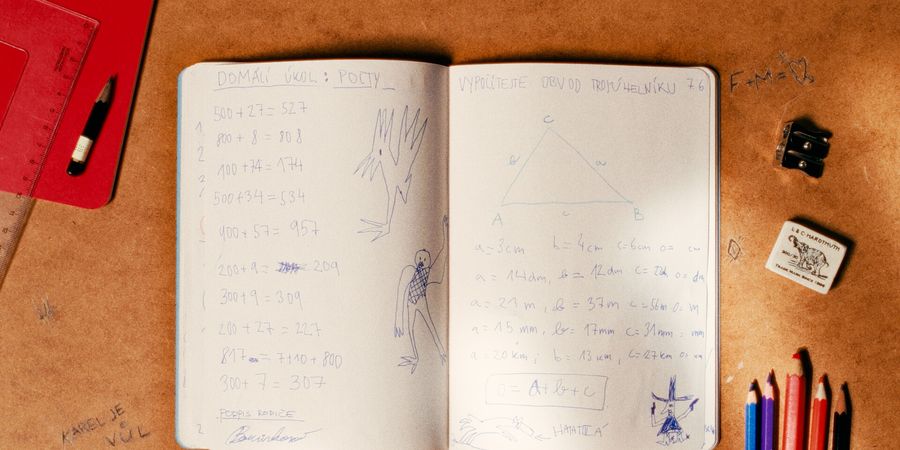 DOMÁCÍ ÚKOL: POČTY
500 + 27 = 527
800 + 8 = 808
100 + 74 = 174
500 + 34 = 534
900 + 57 = 957
200 + 9 = 209
300 + 9 = 309
200 + 27 = 227
817 = 7 + 10 + 800
300 + 7 = 307
PODPIS RODIČE
VYPOČÍTEJTE OBVOD TROJÚHELNÍKU 76
C
b a
A c B
a = 3 cm b = 4 cm c = 6 cm o = cm
a = 14 dm, b = 12 dm c = o = dm
a = 21 m, b = 37 m c = 56 m o = m
a = 15 mm, b = 17 mm c = 31 mm = mm
a = 20 km, b = 13 km, c = 27 km o = km
o = A + b + c
F + M =
L & C HARDTMUTH
KAREL JE
VŮL